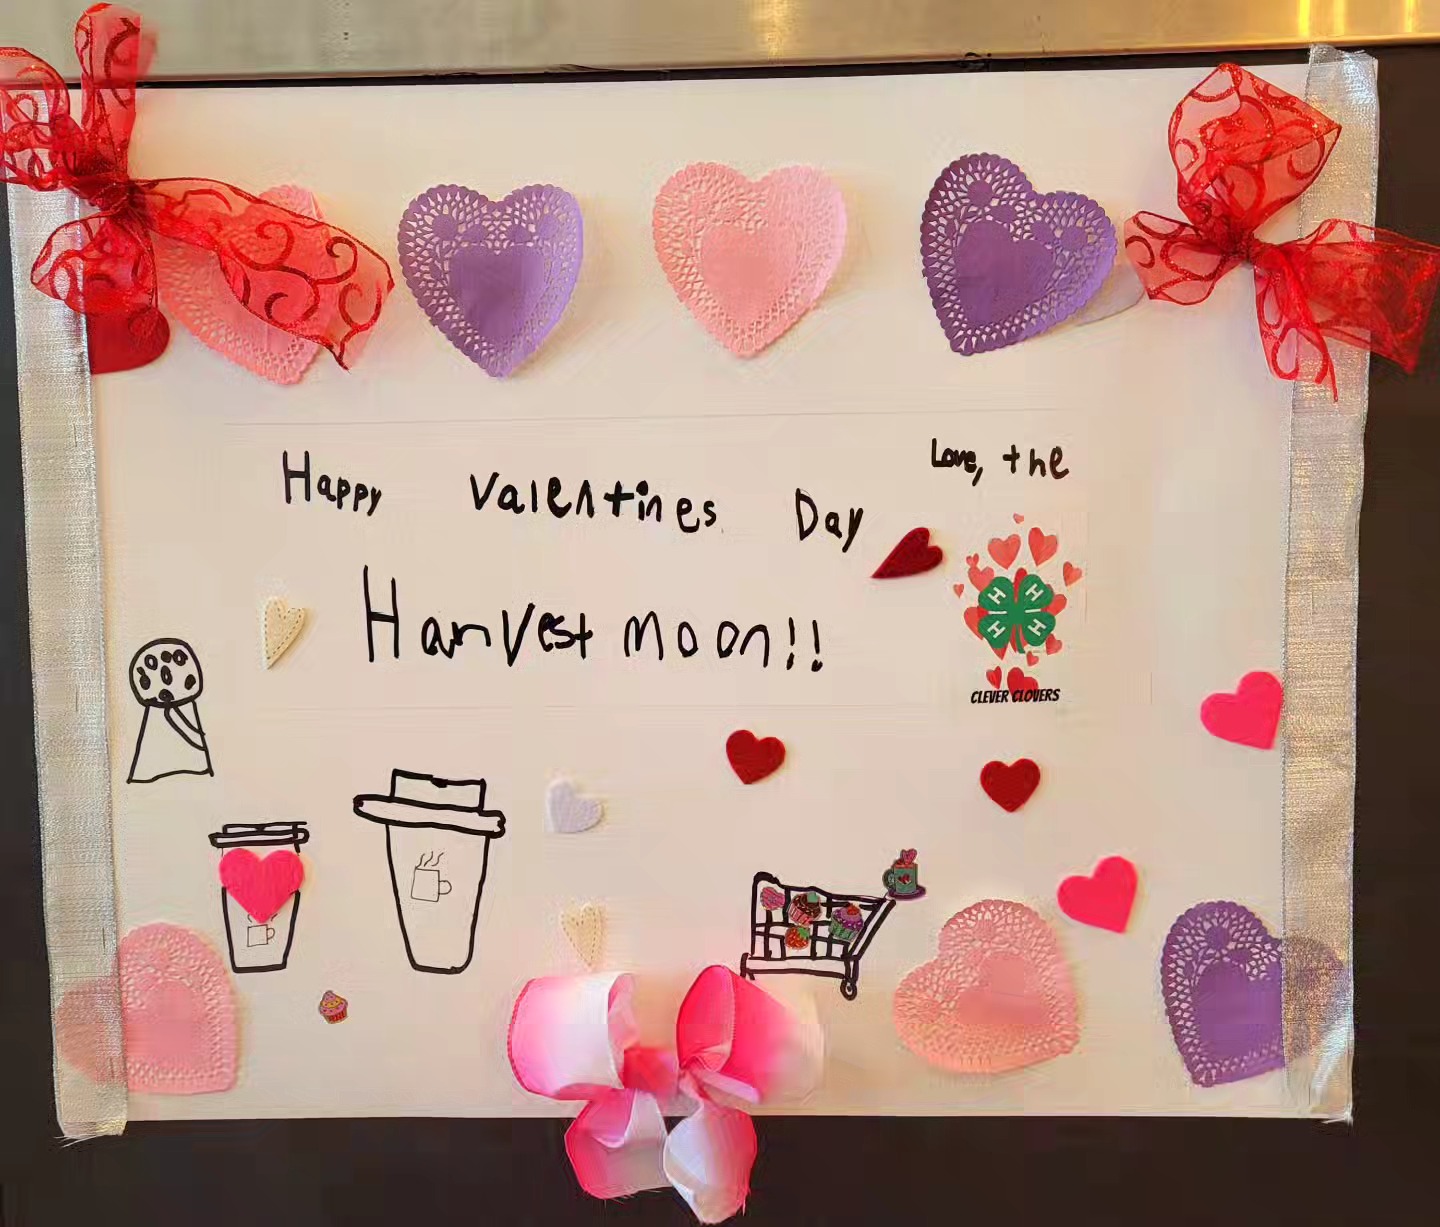 Happy Valentines Day
Harvest moon!!
Love, the
H H
H H
CLEVER CLOVERS